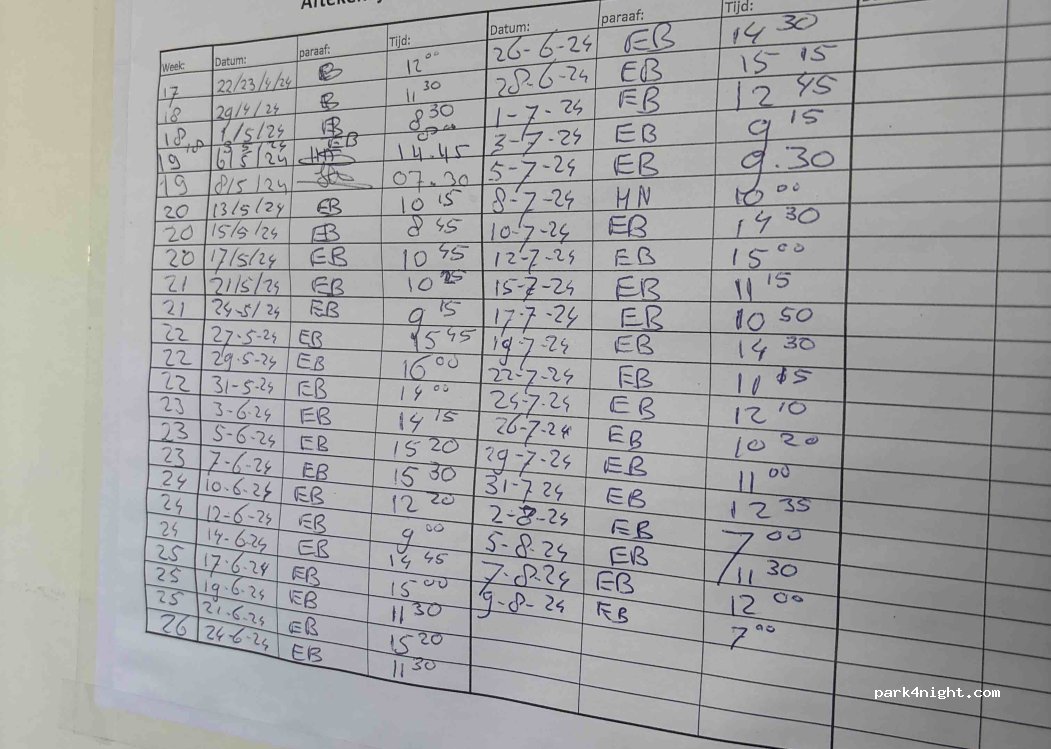 Week: Datum: paraaf: Tijd: Datum: paraaf: Tijd:
17 22/23/4/24 EB 12 00 26-6-24 EB 14 30
18 29/4/24 EB 11 30 28-6-24 EB 15 15
18 1/5/24 EB 8 30 1-7-24 EB 12 45
18 3/5/24 EB 3-7-24 EB 9 15
19 6/5/24 14.45 5-7-24 EB 9.30
19 8/5/24 07.30 8-7-24 MN 10 00
20 13/5/24 EB 10 15 10-7-24 EB 14 30
20 15/5/24 EB 8 45 12-7-24 EB 15 00
20 17/5/24 EB 10 45 15-7-24 EB 11 15
21 21/5/24 EB 10 25 17-7-24 EB 10 50
21 24-5/24 EB 9 15 19-7-24 EB 14 30
22 27-5-24 EB 15 45 22-7-24 EB 11 15
22 29-5-24 EB 16 00 24-7-24 EB 12 10
22 31-5-24 EB 14 00 26-7-24 EB 10 20
23 3-6-24 EB 14 15 29-7-24 EB 11 00
23 5-6-24 EB 15 20 31-7 24 EB 12 35
23 7-6-24 EB 15 30 2-8-24 EB 7 00
24 10-6-24 EB 12 20 5-8-24 EB 11 30
24 12-6-24 EB 9 00 7-8-24 EB 12 00
24 14-6-24 EB 14 45 9-8-24 EB 7 00
25 17-6-24 EB 15 00
25 19-6-24 EB 11 30
25 21-6-24 EB 15 20
26 24-6-24 EB 11 30
park4night.com